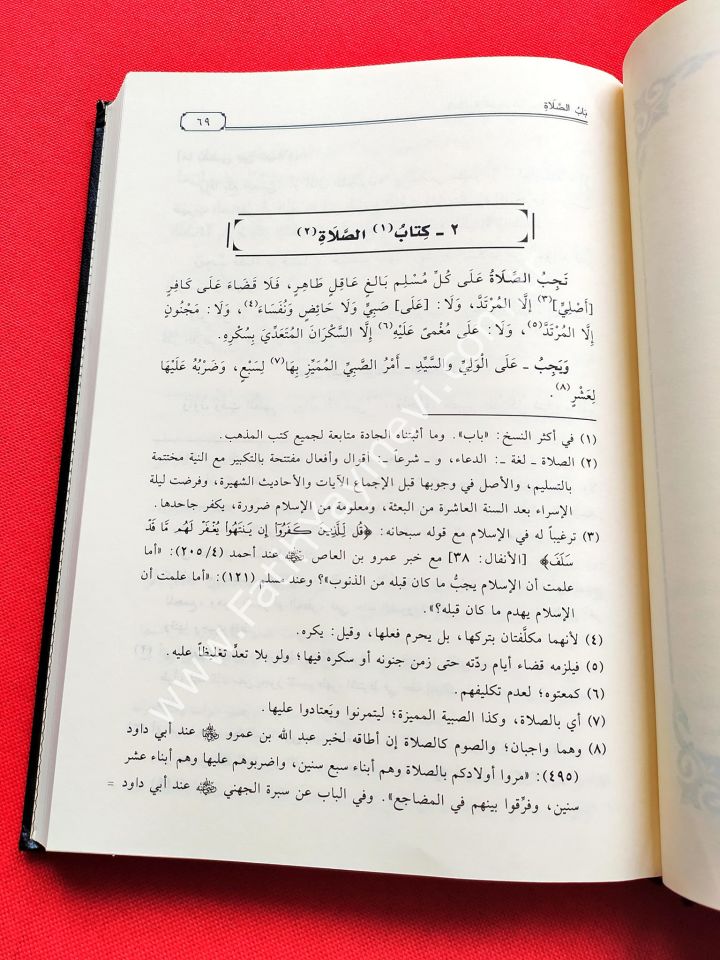 بَابُ الصَّلَاةِ
٦٩
٢ - كِتَابُ (١) الصَّلَاةِ (٢)
تَجِبُ الصَّلَاةُ عَلَى كُلِّ مُسْلِمٍ بَالِغٍ عَاقِلٍ طَاهِرٍ، فَلَا قَضَاءَ عَلَى كَافِرٍ
[أَصْلِيٍّ] (٣) إِلَّا الْمُرْتَدَّ، وَلَا: [عَلَى] صَبِيٍّ وَلَا حَائِضٍ وَنُفَسَاءَ (٤)، وَلَا: مَجْنُونٍ
إِلَّا الْمُرْتَدَّ (٥)، وَلَا: عَلَى مُغْمًى عَلَيْهِ (٦) إِلَّا السَّكْرَانَ الْمُتَعَدِّيَ بِسُكْرِهِ.
وَيَجِبُ - عَلَى الْوَلِيِّ والسَّيِّدِ - أَمْرُ الصَّبِيِّ الْمُمَيِّزِ بِهَا (٧) لِسَبْعٍ، وَضَرْبُهُ عَلَيْهَا
لِعَشْرٍ (٨).
(١) في أكثر النسخ: «باب». وما أثبتناه الجادة متابعة لجميع كتب المذهب.
(٢) الصلاة - لغة -: الدعاء، و - شرعاً -: أقوال وأفعال مفتتحة بالتكبير مع النية مختتمة
بالتسليم، والأصل في وجوبها قبل الإجماع الآيات والأحاديث الشهيرة، وفرضت ليلة
الإسراء بعد السنة العاشرة من البعثة، ومعلومة من الإسلام ضرورة، يكفر جاحدها.
(٣) ترغيباً له في الإسلام مع قوله سبحانه: ﴿قُل لِّلَّذِينَ كَفَرُوٓا۟ إِن يَنتَهُوا۟ يُغْفَرْ لَهُم مَّا قَدْ
سَلَفَ﴾ [الأنفال: ٣٨] مع خبر عمرو بن العاص ﷺ عند أحمد (٢٠٥/٤): «أما
علمت أن الإسلام يجبُّ ما كان قبله من الذنوب»؟ وعند مسلم (١٢١): «أما علمت أن
الإسلام يهدم ما كان قبله؟».
(٤) لأنهما مكلَّفتان بتركها، بل يحرم فعلها، وقيل: يكره.
(٥) فيلزمه قضاء أيام ردّته حتى زمن جنونه أو سكره فيها؛ ولو بلا تعدٍّ تغليظاً عليه.
(٦) كمعتوه؛ لعدم تكليفهم.
(٧) أي بالصلاة، وكذا الصبية المميزة؛ ليتمرنوا ويَعتادوا عليها.
(٨) وهما واجبان؛ والصوم كالصلاة إن أطاقه لخبر عبد الله بن عمرو عند أبي داود
(٤٩٥): «مروا أولادكم بالصلاة وهم أبناء سبع سنين، واضربوهم عليها وهم أبناء عشر
سنين، وفرِّقوا بينهم في المضاجع». وفي الباب عن سبرة الجهني عند أبي داود =
www.Fatihyayinevi.com